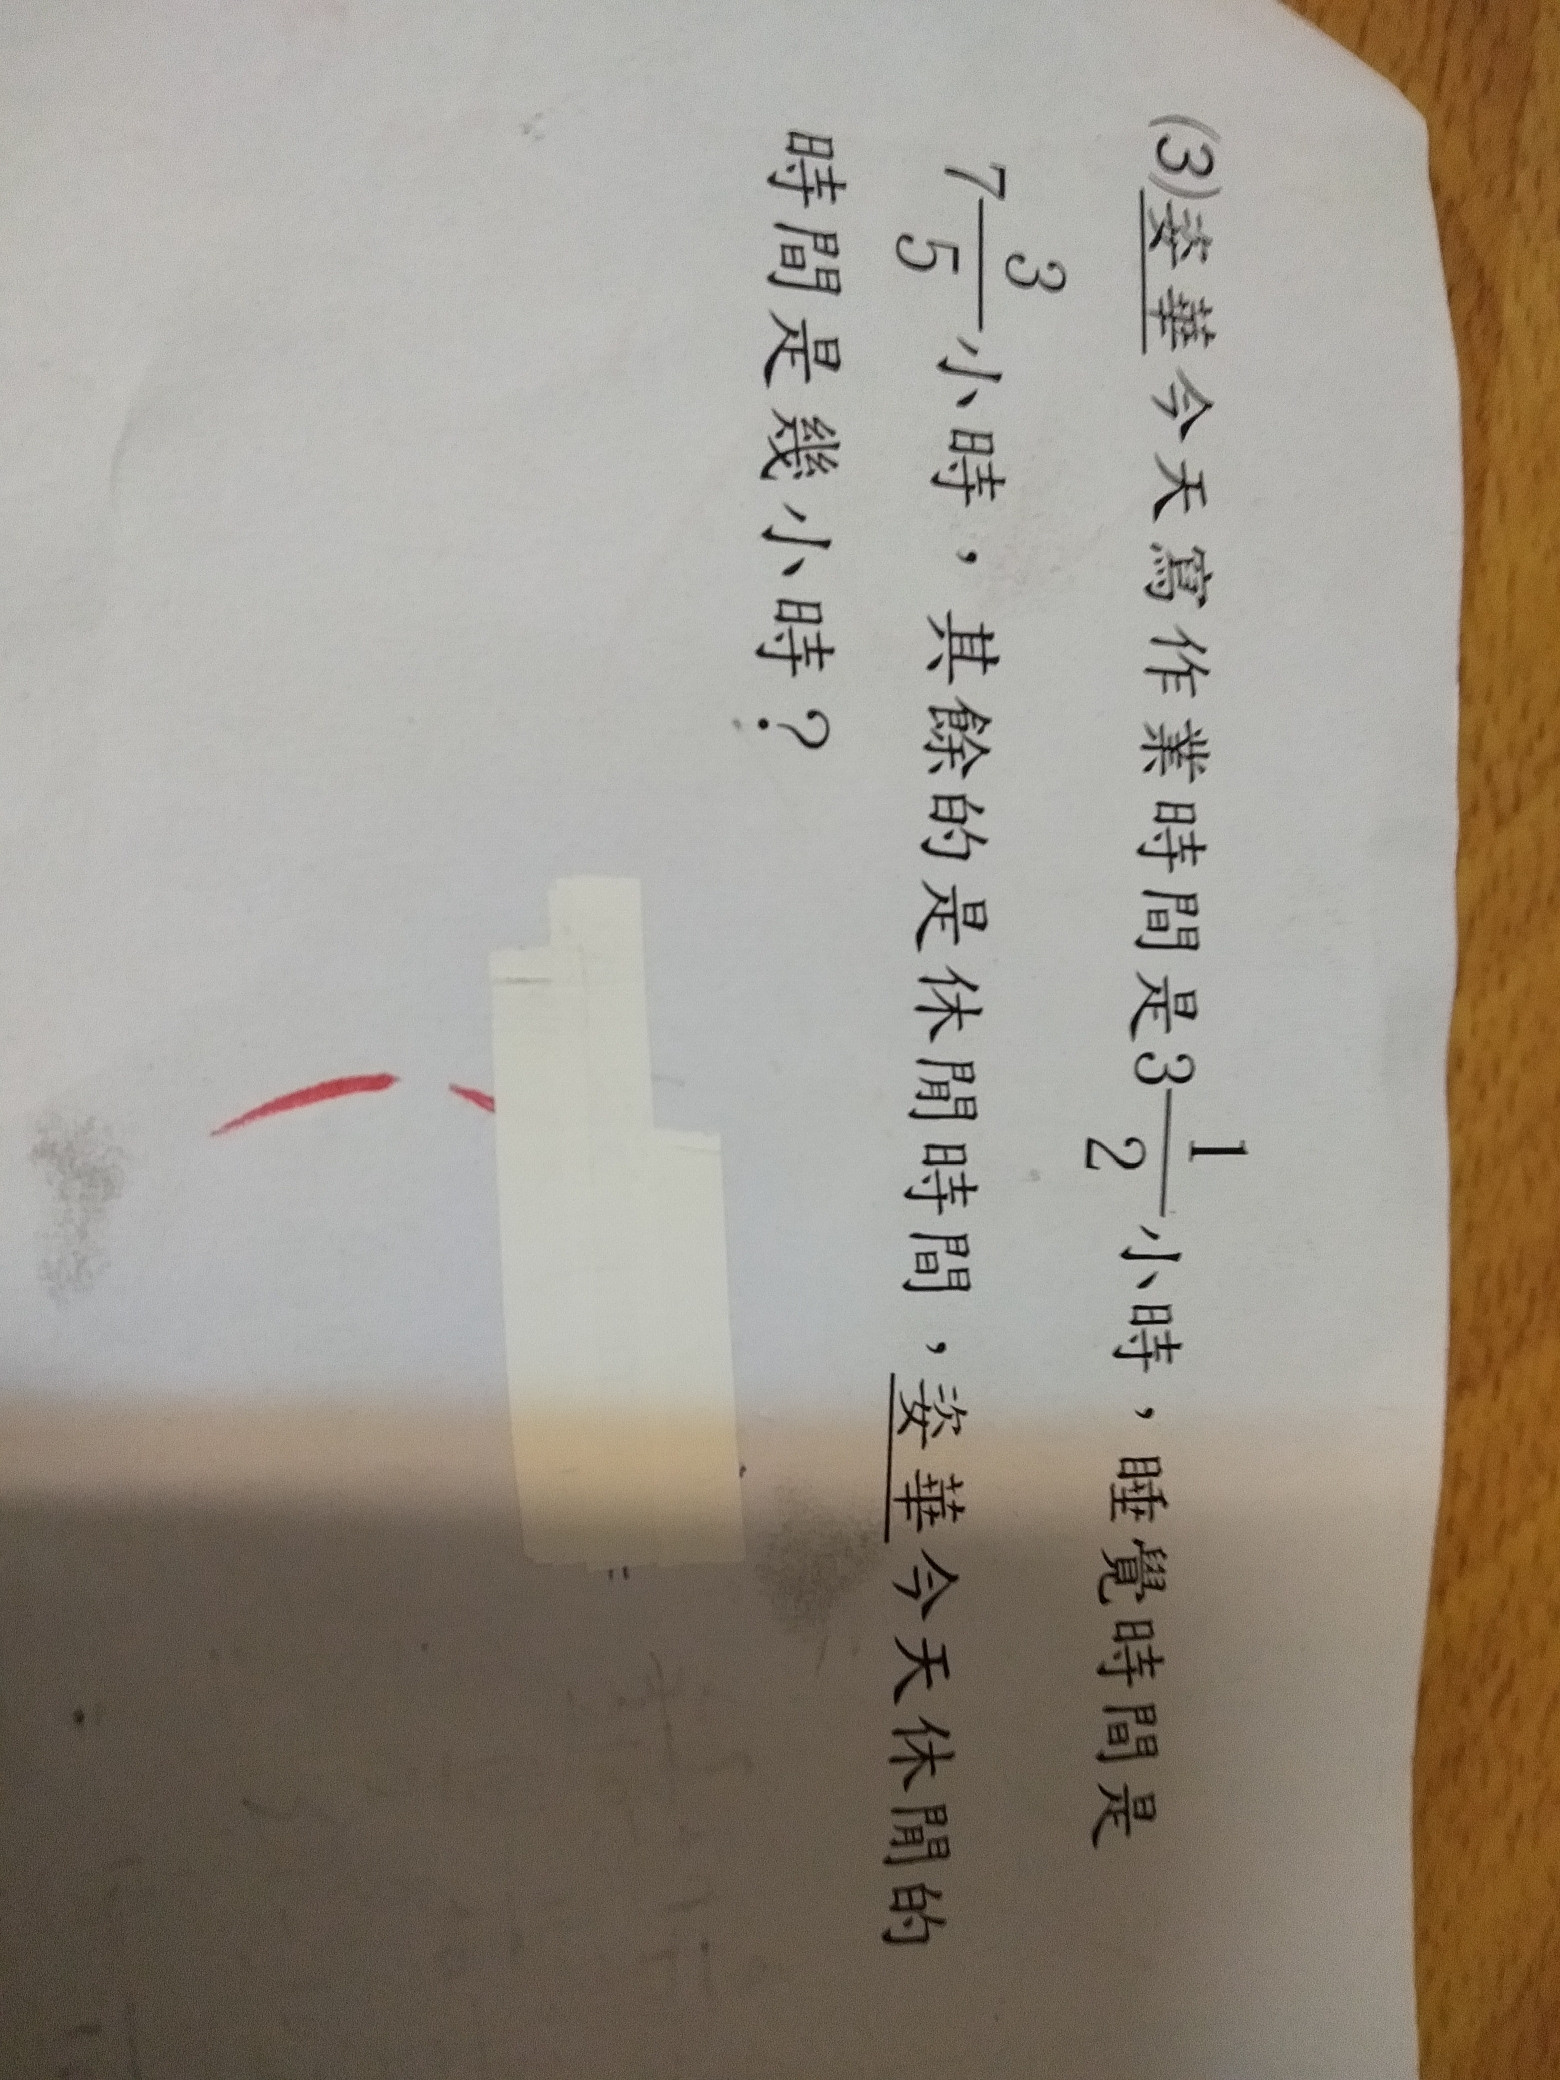 (3)姿華今天寫作業時間是3 1/2 小時，睡覺時間是
7 3/5 小時，其餘的是休閒時間，姿華今天休閒的
時間是幾小時？